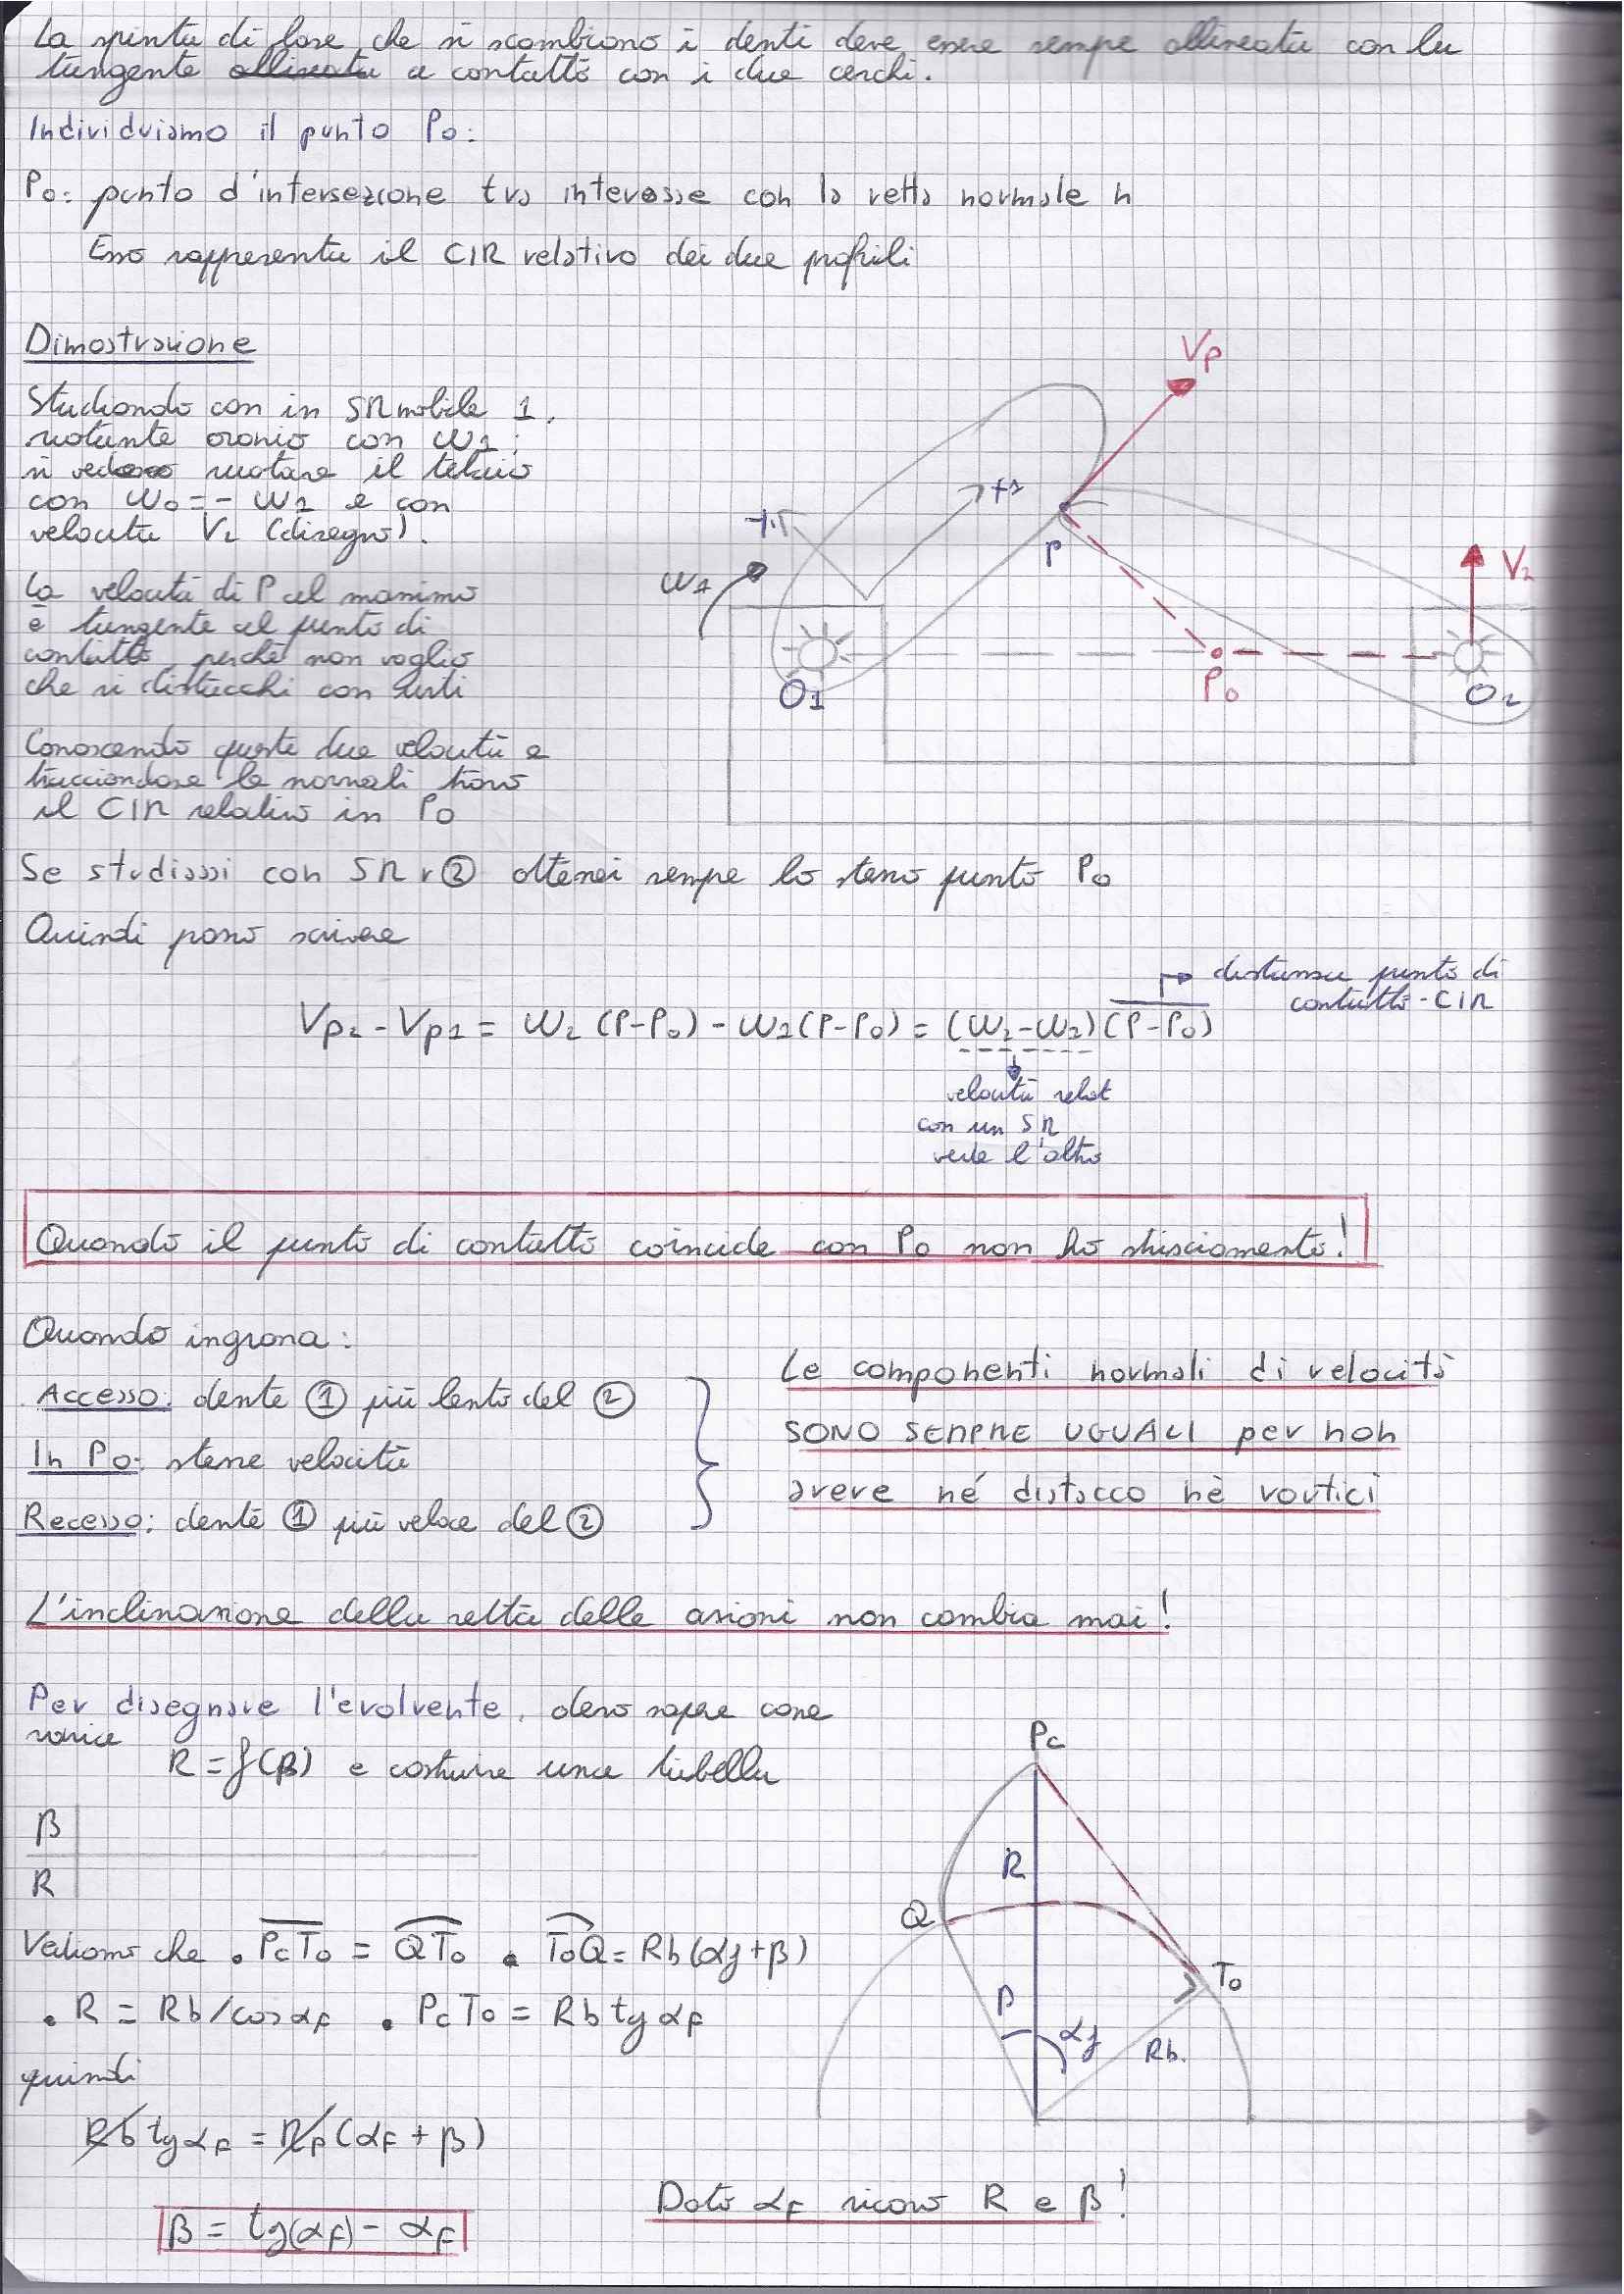 La spinta di forze che si scambiono i denti deve essere sempre allineata con la
tangente allineata a contatto con i due cerchi.
Individuiamo il punto Po:
Po: punto d'intersezione tra interasse con la retta normale n
Esso rappresenta il CIR relativo dei due profili
Dimostrazione
Studiando con in SR mobile 1,
rotante oronio con ω1;
si vedono ruotare il telaio
con ω0=-ω1 e con
velocità V2 (disegno).
La velocità di P al massimo
è tangente al punto di
contatto perchè non voglio
che si distacchi con urti
Conoscendo queste due velocità e
tracciandone le normali trovo
il CIR relativo in Po
Vp
+s
P
ω1
V2
O1
Po
O2
Se studiassi con SR r② otterrei sempre lo stesso punto Po
Quindi posso scrivere
distanza punto di
contatto-CIR
Vp2-Vp1= ω2(P-Po)-ω1(P-Po)=(ω2-ω1)(P-Po)
velocità relat
con un SR
vede l'altro
Quando il punto di contatto coincide con Po non ho strisciamento!
Quando ingrana:
Accesso: dente ① più lento del ②
In Po: stesse velocità
Recesso: dente ① più veloce del ②
Le componenti normali di velocità
SONO SEMPRE UGUALI per non
avere né distacco nè vortici
L'inclinazione della retta delle azioni non cambia mai!
Per disegnare l'evolvente, devo sapere come
varia
R=f(β) e costruire una tabella
β
R
Vediamo che • PcTo = QTo • ToQ=Rb(αf+β)
• R = Rb/cosαF • PcTo = Rb tgαF
quindi
Rb tgαF = Rb(αF+β)
β = tg(αF)-αF
Dato αF ricavo R e β!
Pc
R
Q
To
β
αf
Rb.